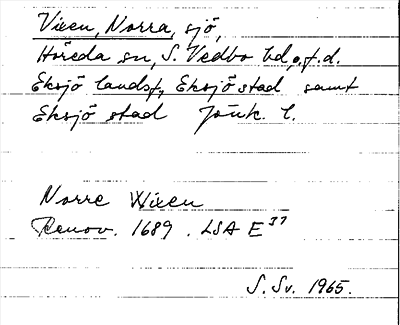 Vixen, Norra, sjö,
Höreda sn, S. Vedbo hd, f.d.
Eksjö landsf, Eksjö stad samt
Eksjö stad Jönk. l.
Norre Wixen
Renov. 1689. LSA E 37
S. Sv. 1965.